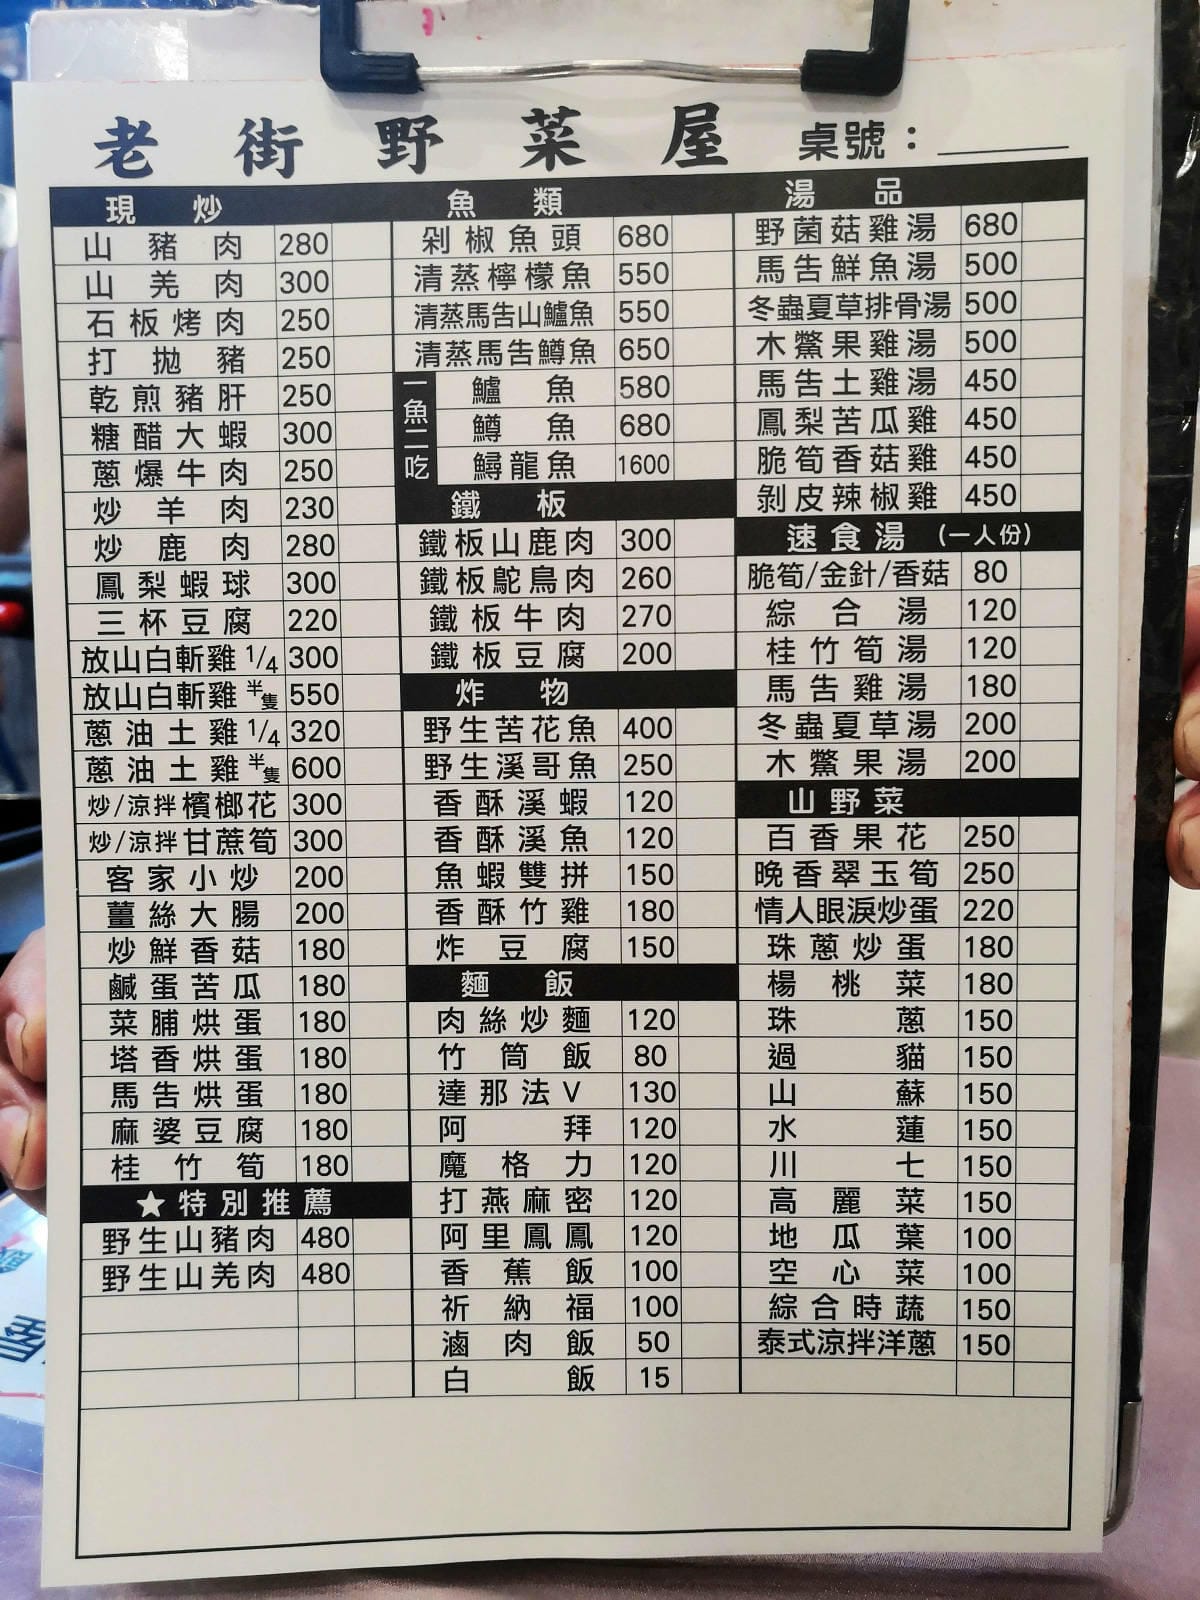 老街野菜屋 桌號：
現炒
山豬肉 280
山羌肉 300
石板烤肉 250
打拋豬 250
乾煎豬肝 250
糖醋大蝦 300
蔥爆牛肉 250
炒羊肉 230
炒鹿肉 280
鳳梨蝦球 300
三杯豆腐 220
放山白斬雞 1/4 300
放山白斬雞 半隻 550
蔥油土雞 1/4 320
蔥油土雞 半隻 600
炒/涼拌檳榔花 300
炒/涼拌甘蔗筍 300
客家小炒 200
薑絲大腸 200
炒鮮香菇 180
鹹蛋苦瓜 180
菜脯烘蛋 180
塔香烘蛋 180
馬告烘蛋 180
麻婆豆腐 180
桂竹筍 180
★特別推薦
野生山豬肉 480
野生山羌肉 480
魚類
剁椒魚頭 680
清蒸檸檬魚 550
清蒸馬告山鱸魚 550
清蒸馬告鱒魚 650
一魚二吃
鱸魚 580
鱒魚 680
鱘龍魚 1600
鐵板
鐵板山鹿肉 300
鐵板鴕鳥肉 260
鐵板牛肉 270
鐵板豆腐 200
炸物
野生苦花魚 400
野生溪哥魚 250
香酥溪蝦 120
香酥溪魚 120
魚蝦雙拼 150
香酥竹雞 180
炸豆腐 150
麵飯
肉絲炒麵 120
竹筒飯 80
達那法V 130
阿拜 120
魔格力 120
打燕麻密 120
阿里鳳鳳 120
香蕉飯 100
祈納福 100
滷肉飯 50
白飯 15
湯品
野菌菇雞湯 680
馬告鮮魚湯 500
冬蟲夏草排骨湯 500
木鱉果雞湯 500
馬告土雞湯 450
鳳梨苦瓜雞 450
脆筍香菇雞 450
剝皮辣椒雞 450
速食湯（一人份）
脆筍/金針/香菇 80
綜合湯 120
桂竹筍湯 120
馬告雞湯 180
冬蟲夏草湯 200
木鱉果湯 200
山野菜
百香果花 250
晚香翠玉筍 250
情人眼淚炒蛋 220
珠蔥炒蛋 180
楊桃菜 180
珠蔥 150
過貓 150
山蘇 150
水蓮 150
川七 150
高麗菜 150
地瓜葉 100
空心菜 100
綜合時蔬 150
泰式涼拌洋蔥 150